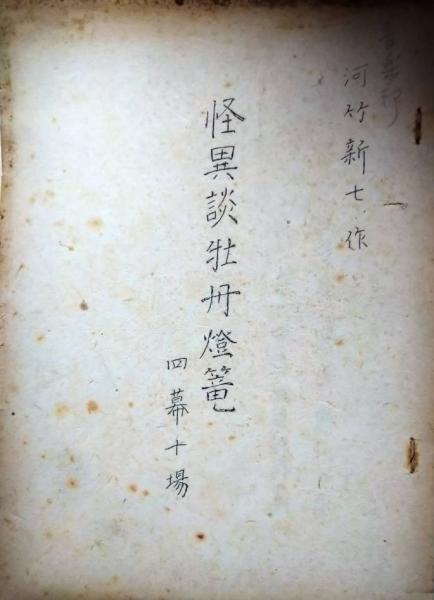 河竹新七作
怪異談牡丹燈篭
四幕十場